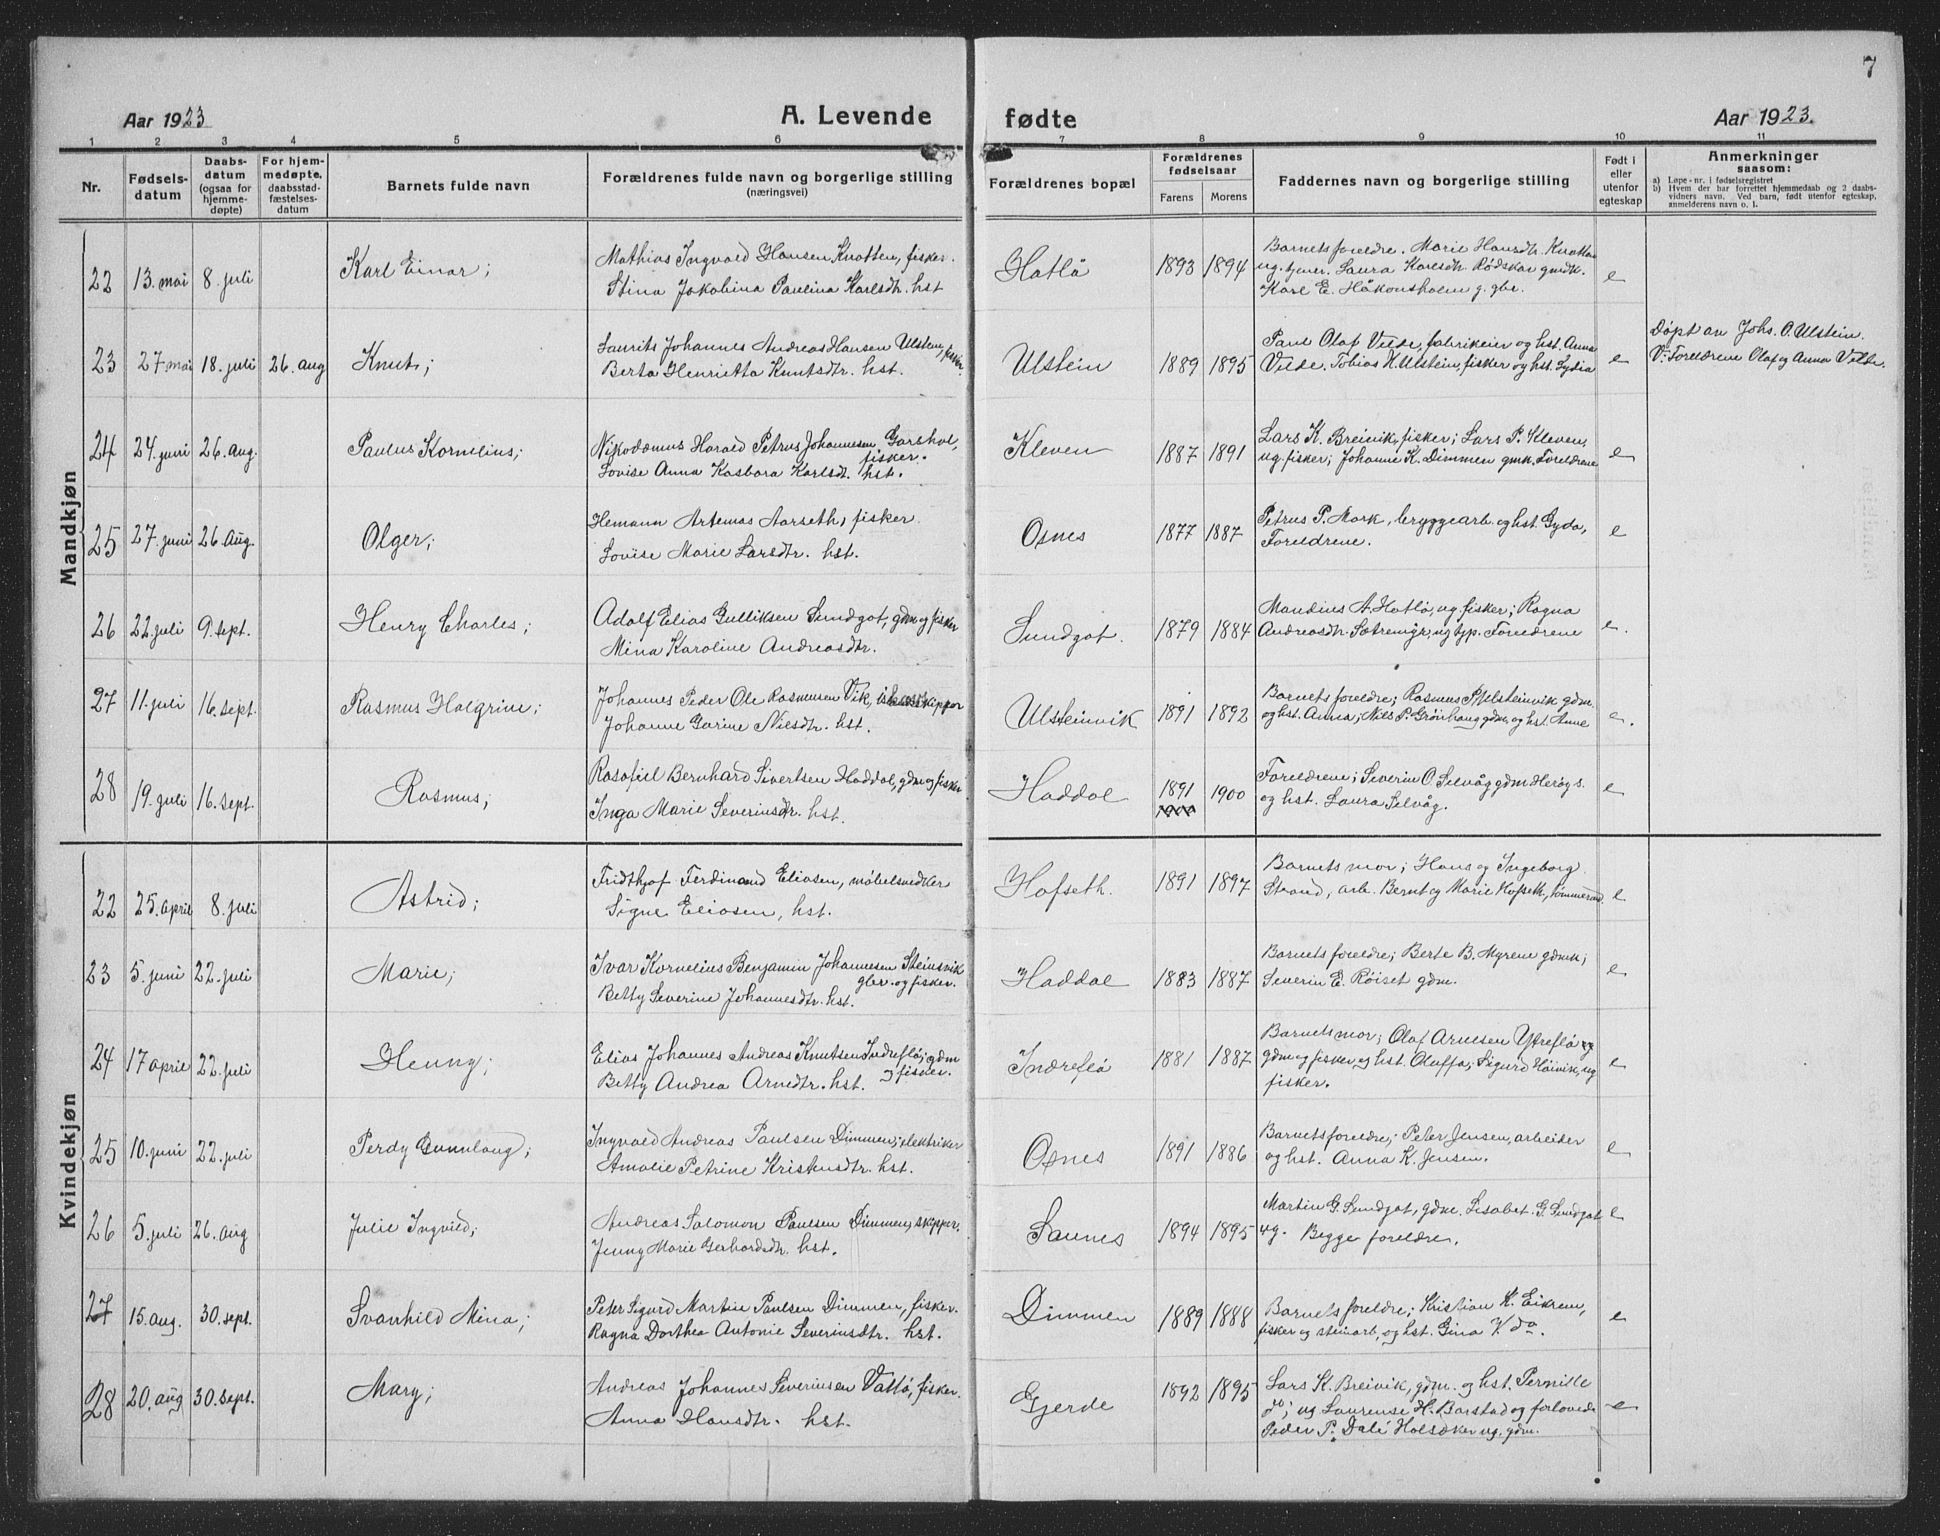 7
Aar 1923
A. Levende
fødte
Aar 1923.
1 2 3 4 5 6 7 8 9 10 11
Nr.
Fødsels-
datum
Daabs-
datum
(ogsaa for
hjemme-
døpte)
For hjem-
medøpte,
daabsstad-
fæstelses-
datum
Barnets fulde navn
Forældrenes fulde navn og borgerlige stilling
(næringsvei)
Forældrenes bopæl
Forældrenes
fødselsaar
Farens Morens
Faddernes navn og borgerlige stilling
Født i
eller
utenfor
egteskap
Anmerkninger
saasom:
a) Løpe-nr. i fødselsregistret
b) Hvem der har forrettet hjemmedaab og 2 daabs-
vidners navn. Ved barn, født utenfor egteskap,
anmelderens navn o. l.
Mandkjøn
22 13. mai 8. juli Karl Einar;
Mathias Ingvald Hansen Knotten, fisker.
Stina Jakobina Paulina Karlsdtr. hst
Hatlö 1893 1894
Barnets foreldre. Marie Hansdtr. Knotten
ug. tjener. Laura Karlsdtr. Rødskar gmdk.
Kåre E. Håkonsholm g. gbr.
e
23 27 mai 18. juli 26. aug Knut;
Laurits Johannes Andreas Hansen Ulstein, fisker.
Berta Henrietta Knutsdtr. hst.
Ulstein 1889 1895
Paul Olaf Velde, fabrikeier og hst. Anna
Velde. Tobias H. Ulstein, fisker og hst. Lydia
e
Døpt av Johs. O. Ulstein.
V: Foreldrene Olaf og Anna Velde.
24 24. juni 26. aug. Paulus Kornelius;
Nikodemus Harald Petrus Johannesen Garshol,
fisker.
Lovise Anna Kasbara Karlsdt. hst.
Kleven 1887 1891
Lars K. Breivik, fisker; Lars P. Kleven,
ug. fisker; Johanne K. Dimmen gmk. Foreldrene
e
25 27. juni 26. Aug. Olger;
Hemann Artemas Aarseth, fisker.
Lovise Marie Larsdtr. hst.
Osnes 1877 1887
Petrus P. Mork, bryggearb. og hst. Gyda,
Foreldrene.
e
26 22. juli 9. sept. Henry Charles;
Adolf Elias Gulliksen Sundgot, gdm og fisker
Mina Karoline Andreasdtr.
Sundgot. 1879 1884
Mandius A. Hatlø, ug. fisker; Ragna
Andreasdtr. Sætremyr, ug. tjp. Foreldrene
e.
27 11. juli 16. sept. Rasmus Halgrim;
Johannes Peder Ole Rasmussen Vik, ishavsskipper
Johanne Garine Nilsdtr. hst.
Ulsteinvik 1891 1892
Barnets foreldre; Rasmus P. Ulsteinvik gdm.
og hst. Anna; Nils P. Grönhaug gdm, og hst. Anne
e.
28 19. juli 16. sept. Rasmus;
Rasofiel Bernhard Sivertsen Haddal, gdm og fisker
Inga Marie Severinsdtr. hst.
Haddal 1891 1900
Foreldrene; Severin O. Selvåg gdm Herøy s.
og hst. Laura Selvåg.
e
Kvindekjøn
22 25. april 8. juli Astrid;
Fridthjof Ferdinand Eliasen, møbelsnedker
Signe Eliasen, hst.
Hofseth. 1891 1897
Barnets mor; Hans og Ingeborg
Strand, arb. Bernt og Marie Hofseth,
e
23 5. juni 22. juli Marie;
Ivar Kornelius Benjamin Johannesen Steinsvik
gbr. og fisker.
Betty Severine Johannesdtr. hst.
Haddal 1883 1887
Barnets foreldre; Berte B. Myrene gdmk;
Severin E. Röiset gdm.
e
24 17 april 22. juli Henny;
Elias Johannes Andreas Knutsen Indreflö, gdm
og fisker.
Betty Andrea Arnedtr. hst.
Indreflö 1881 1887
Barnets mor; Olaf Arnesen Ytreflö
gdm og fisker og hst. Oluffa; Sigurd Höivik, ug
fisker.
e
25 10. juni 22. juli Perdy Gunnlaug;
Ingvald Andreas Paulsen Dimmen, elektriker
Amalie Petrine Kristensdtr. hst.
Osnes 1891 1886
Barnets foreldre; Peter Jensen, arbeider
og hst. Anna K. Jensen.
e
26 5. juli 26. aug Julie Ingvild;
Andreas Salomon Paulsen Dimmen, skipper.
Jenny Marie Gerhardsdtr. hst.
Saunes 1894 1895
Martin G. Sundgot, gdm. Lisabet G. Sundgot
ug. Begge foreldre.
e
27 15. aug. 30. sept. Svanhild Mina;
Peter Sigurd Martin Paulsen Dimmen, fisker.
Ragna Dorthea Antonie Severinsdtr. hst.
Dimmen 1889 1888
Barnets foreldre; Kristian K. Eikrem,
fisker og steinarb, og hst. Gina K. do.
e
28 20. aug 30. sept. Mary;
Andreas Johannes Severinsen Vattö, fisker.
Anna Hansdtr. hst.
Gjerde 1892 1895
Lars K. Breivik, gdm. og hst. Pernille
do; ug Laurense H. Barstad og forlovede
Peder P. Dale Holsæker ug. gdm.
e